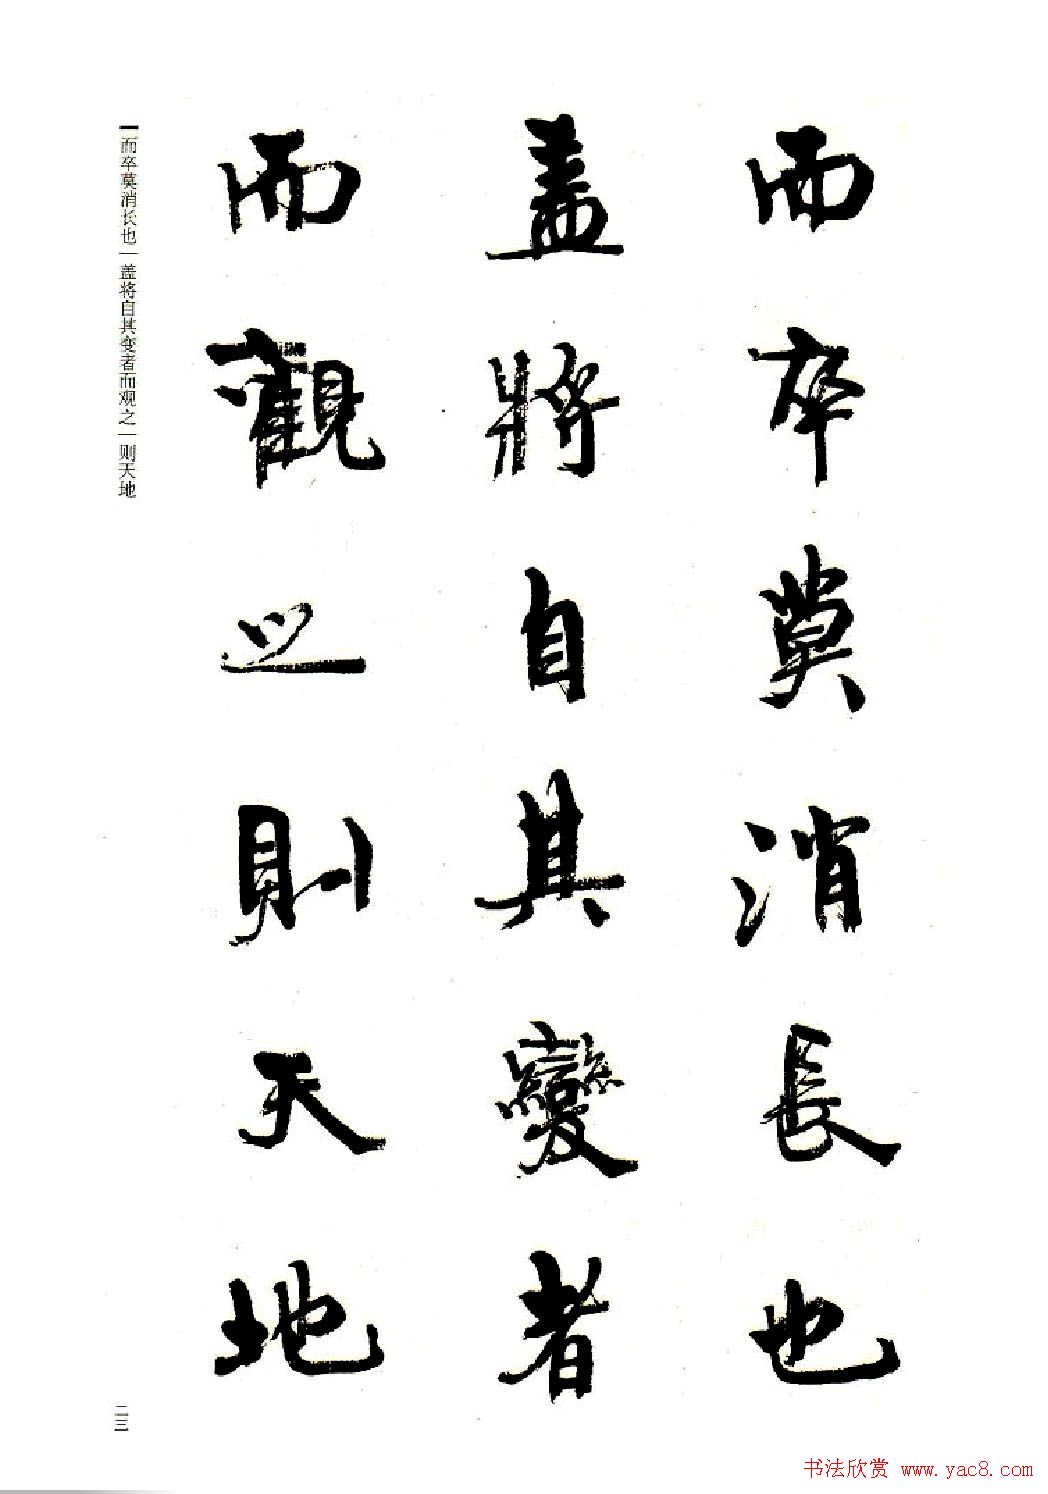 而卒莫消長也
盖將自其變者
而觀之則天地
而卒莫消长也一盖将自其变者而观之一则天地
二三
书法欣赏 www.yac8.com